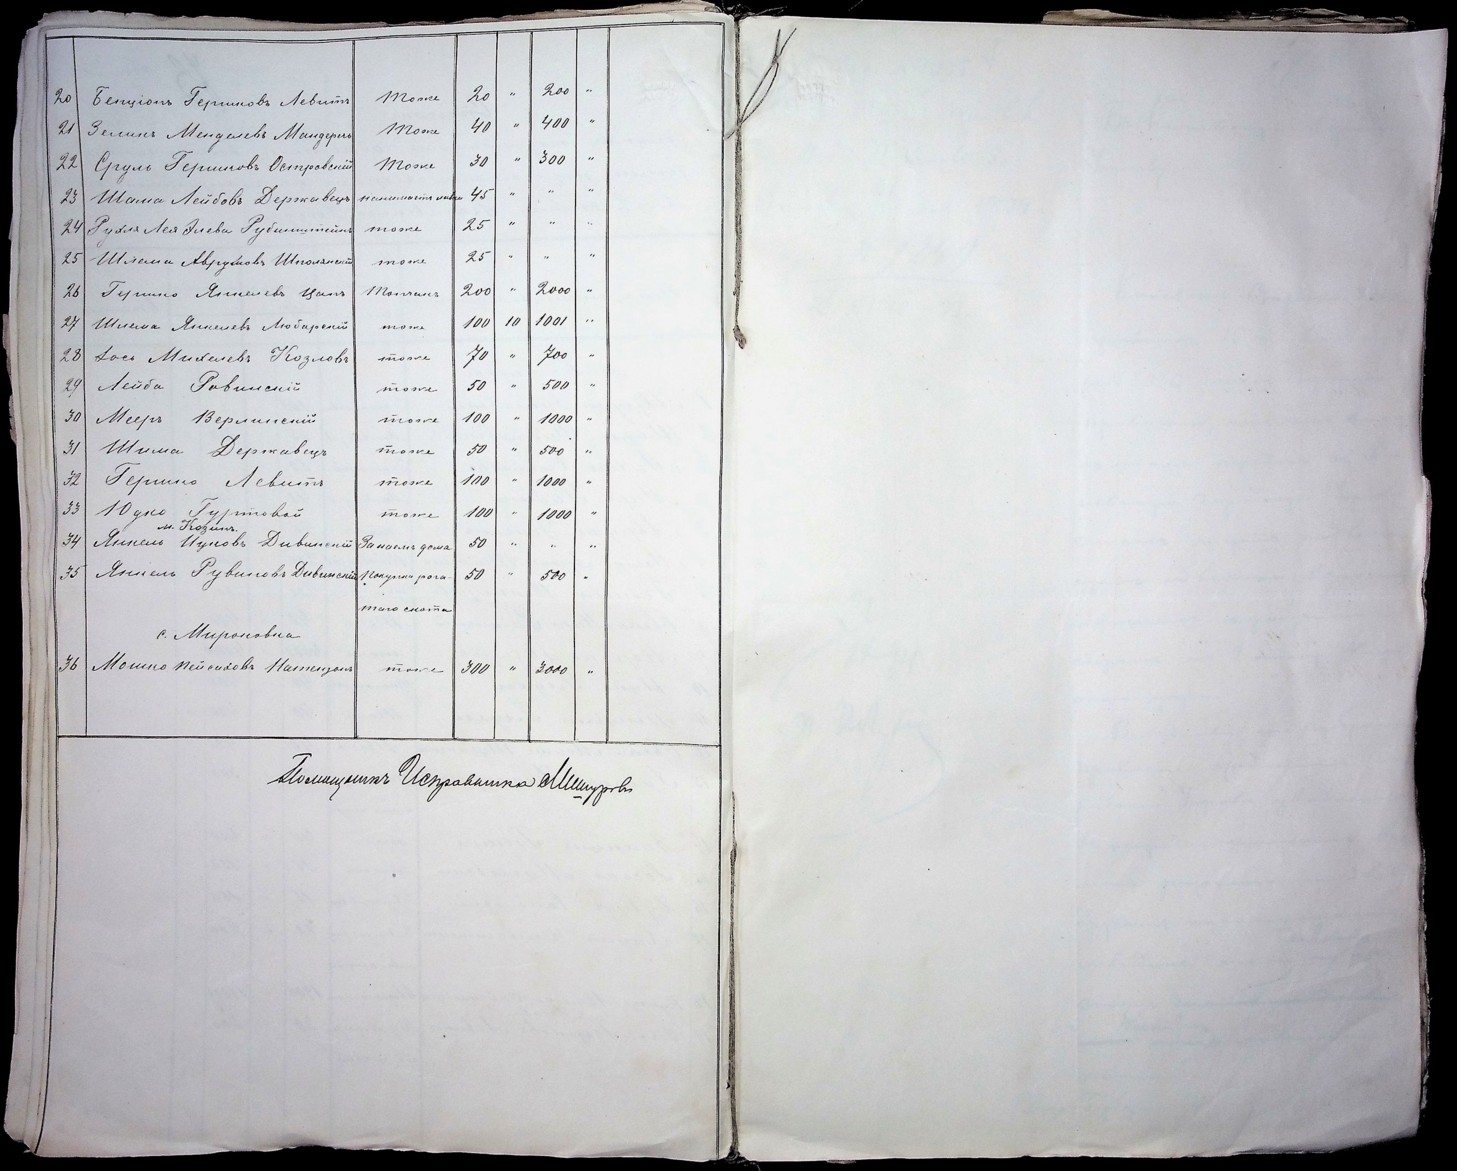 20 Бенціонъ Гершковъ Левитъ Тоже 20 " 200 "
21 Зельикъ Менделевъ Мандеръ Тоже 40 " 400 "
22 Сруль Гершковъ Островскій Тоже 30 " 300 "
23 Шама Лейбовъ Державецъ 45 " " "
24 Рухля Лея Элева Рубинштейнъ тоже 25 " " "
25 Шлема Аврумовъ Шполянскій тоже 25 " " "
26 Гершко Янкелевъ Цапъ 200 " 2000 "
27 Шлема Янкелевъ Любарскій тоже 100 10 1001 "
28 Іось Михелевъ Козловъ тоже 70 " 700 "
29 Лейба Ровинскій тоже 50 " 500 "
30 Мееръ Верлинскій тоже 100 " 1000 "
31 Шима Державецъ тоже 50 " 500 "
32 Гершко Левитъ тоже 100 " 1000 "
33 Юдко Гуртовой тоже 100 " 1000 "
м. Козинъ.
34 Янкель Ицковъ Дивинскій За наемъ дома 50 " " "
35 Янкель Рувиновъ Дивинскій Покупка рога- 50 " 500 "
таго скота
с. Мироновка
36 Мошко Пейсаховъ тоже 300 " 3000 "
Помощникъ Исправника